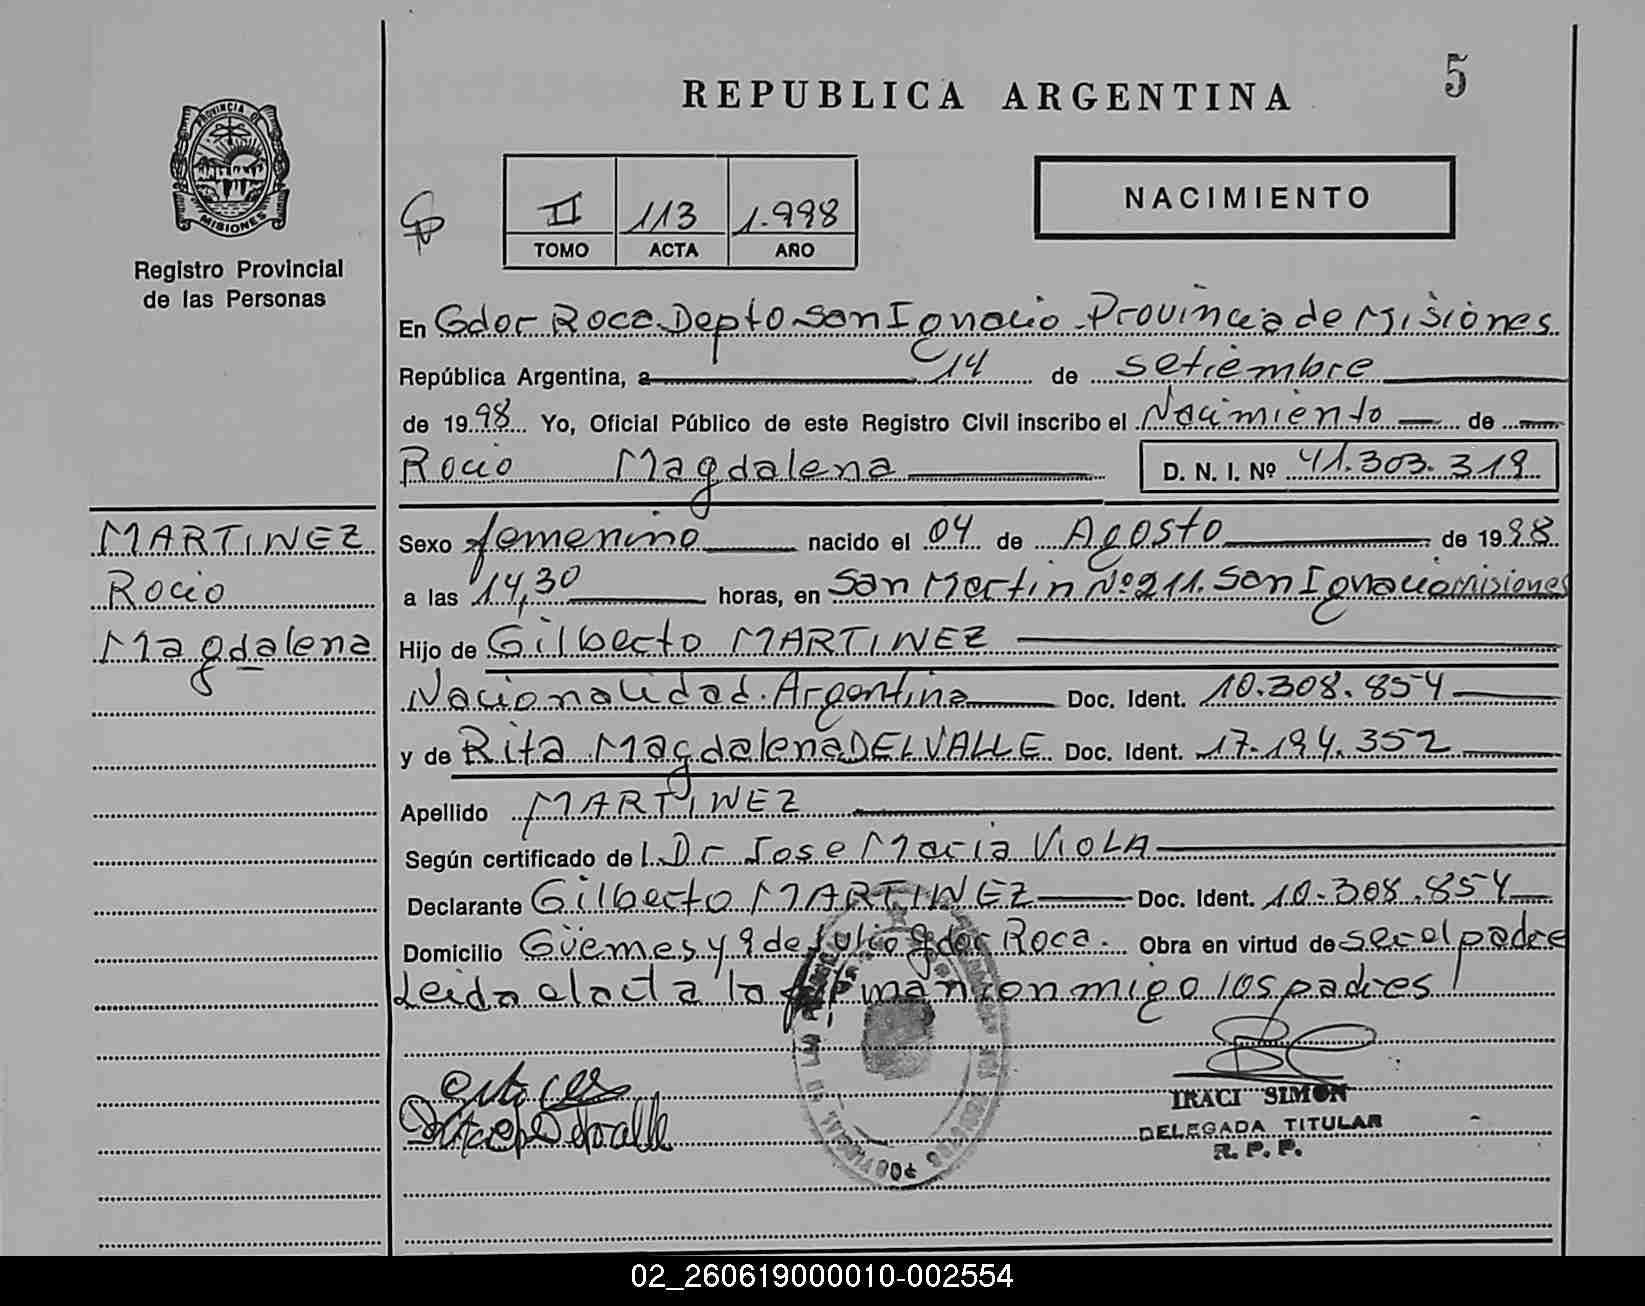 REPUBLICA ARGENTINA
5
PROVINCIA DE
MISIONES
Registro Provincial
de las Personas
II 113 1.998
TOMO ACTA AÑO
NACIMIENTO
En Gdor Roca Depto San Ignacio - Provincia de Misiones
República Argentina, a 14 de setiembre
de 1998 Yo, Oficial Público de este Registro Civil inscribo el Nacimiento de
Rocio Magdalena D. N. I. Nº 41.303.319
MARTINEZ
Rocio
Magdalena
Sexo femenino nacido el 04 de Agosto de 1998
a las 14,30 horas, en San Martin Nº 211. San Ignacio Misiones
Hijo de Gilberto MARTINEZ
Nacionalidad Argentina Doc. Ident. 10.308.854
y de Rita Magdalena DEL VALLE Doc. Ident. 17.194.352
Apellido MARTINEZ
Según certificado de l Dr Jose Maria VIOLA
Declarante Gilberto MARTINEZ Doc. Ident. 10.308.854
Domicilio Güemes y 9 de Julio gdor Roca. Obra en virtud de ser el padre
Leida el acta la firman conmigo los padres
IRACI SIMON
DELEGADA TITULAR
R. P. P.
02_260619000010-002554